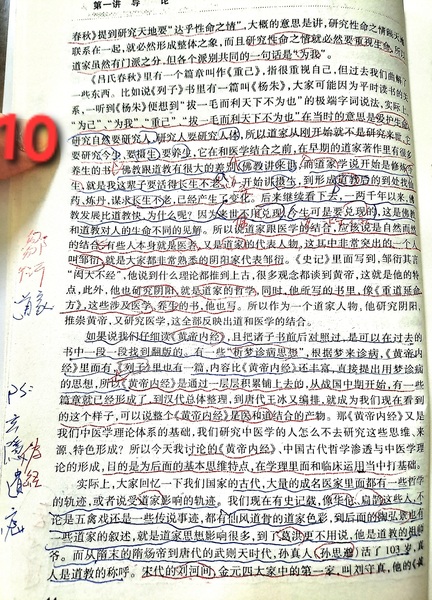 第一讲 导 论
春秋》提到研究天地要"达乎性命之情",大概的意思是讲,研究性命之情和天地
联系在一起,就必然形成整体之象,而且研究性命之情就必然要重视生命,所以
道家虽然有门派之分,但各个派别共同的一句话是"为我"。
《吕氏春秋》里有一个篇章叫作《重己》,指很重视自己,但过去我们曲解了
一些东西。比如说《列子》书里有一篇叫《杨朱》,大家可能因为平时读书的关
系,一听到《杨朱》便想到"拔一毛而利天下不为也"的极端字词说法,实际上
"为己"、"为我"、"重己"、"拔一毛而利天下不为也"在当时的意思是爱护生命,
研究自然要研究人,研究人要研究人体,所以道家从刚开始就不是研究来世,它
要研究今生,要摄生,要养生,它在和医学结合之前,在早期的道家著作里有很多
养生的书。佛教跟道教有很大的差别,佛教讲来世,而道家学说开始是修炼今
生,就是我这辈子要活得长生不老。开始讲摄生,到形成道教后的到处找仙
药,炼丹,谋求长生不老,已经产生了变化。后来继续看下去,一两千年以来,佛
教发展比道教快,为什么呢?因为来世不用兑现,今生可是要兑现的,这是佛教
和道教对人的生命不同的见解。所以说道家跟医学的结合,应该说是自然而然
的结合,有些人本身就是医者,又是道家的代表人物,这其中非常突出的一个人
叫邹衍,就是大家都非常熟悉的阴阳家代表邹衍。《史记》里面写到,邹衍其言
"闳大不经",他说到什么理论都推到上古,很多观念都谈到黄帝,这就是他的特
点,此外,他也研究阴阳,就是道家的哲学。同时,他所写的书里,像《重道延命
方》,这些涉及医学、养生的书,他也写。所以作为一个道家人物,他研究阴阳,
推崇黄帝,又研究医学,这全部反映出道和医学的结合。
如果说我们仔细读《黄帝内经》,且把诸子书前后对照过,是可以在过去的
书中一段一段找到翻版的。有一些"析梦诊病思想",根据梦来诊病,《黄帝内
经》里面有,《列子》里也有一篇,内容比《黄帝内经》还丰富,直接提出用梦诊病
的思想,所以《黄帝内经》是通过一层层积累铺上去的,从战国中期开始,有一些
篇章就已经形成了,到汉代总体整理,到唐代王冰又编排,就成为我们现在看到
的这个样子,可以说整个《黄帝内经》是医和道结合的产物。那《黄帝内经》又是
我们中医学理论体系的基础,我们研究中医学的人怎么不去研究这些思维、来
源、特色形成?所以今天我讨论的《黄帝内经》、中国古代哲学渗透与中医学理
论的形成,目的是为后面的基本思维特点,在学理里面和临床运用当中打基础。
实际上,大家回忆一下我们国家的古代,大量的成名医家里面都有一些哲学
的轨迹,或者说受道家影响的轨迹。我们现在有史记载,像华佗、扁鹊这些人,不
论是五禽戏还是一些传说事迹,都有仙风道骨的道家色彩,到后面的陶弘景也有
些道家的叙述,就是道家思想影响很多,到了葛洪更不用说,他是道教的祖师
爷。而从隋末的隋炀帝到唐代的武则天时代,孙真人(孙思邈)活了103岁,真
人是道教的称呼。宋代的刘河间,金元四大家中的第一家,叫刘守真,他的《
10
邹
衍
道家
PS: